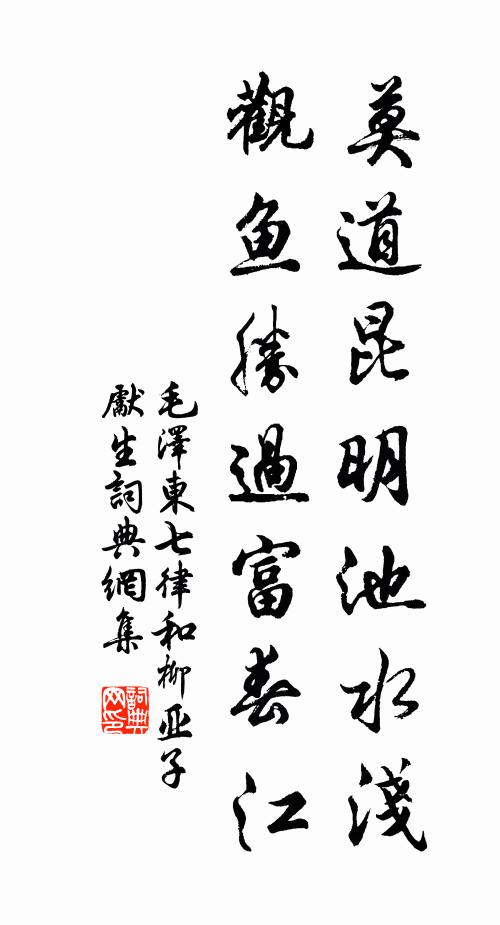 莫道昆明池水淺
觀鱼勝過富春江
毛澤東七律和柳亚子
獻生詞典網集
詞典网印